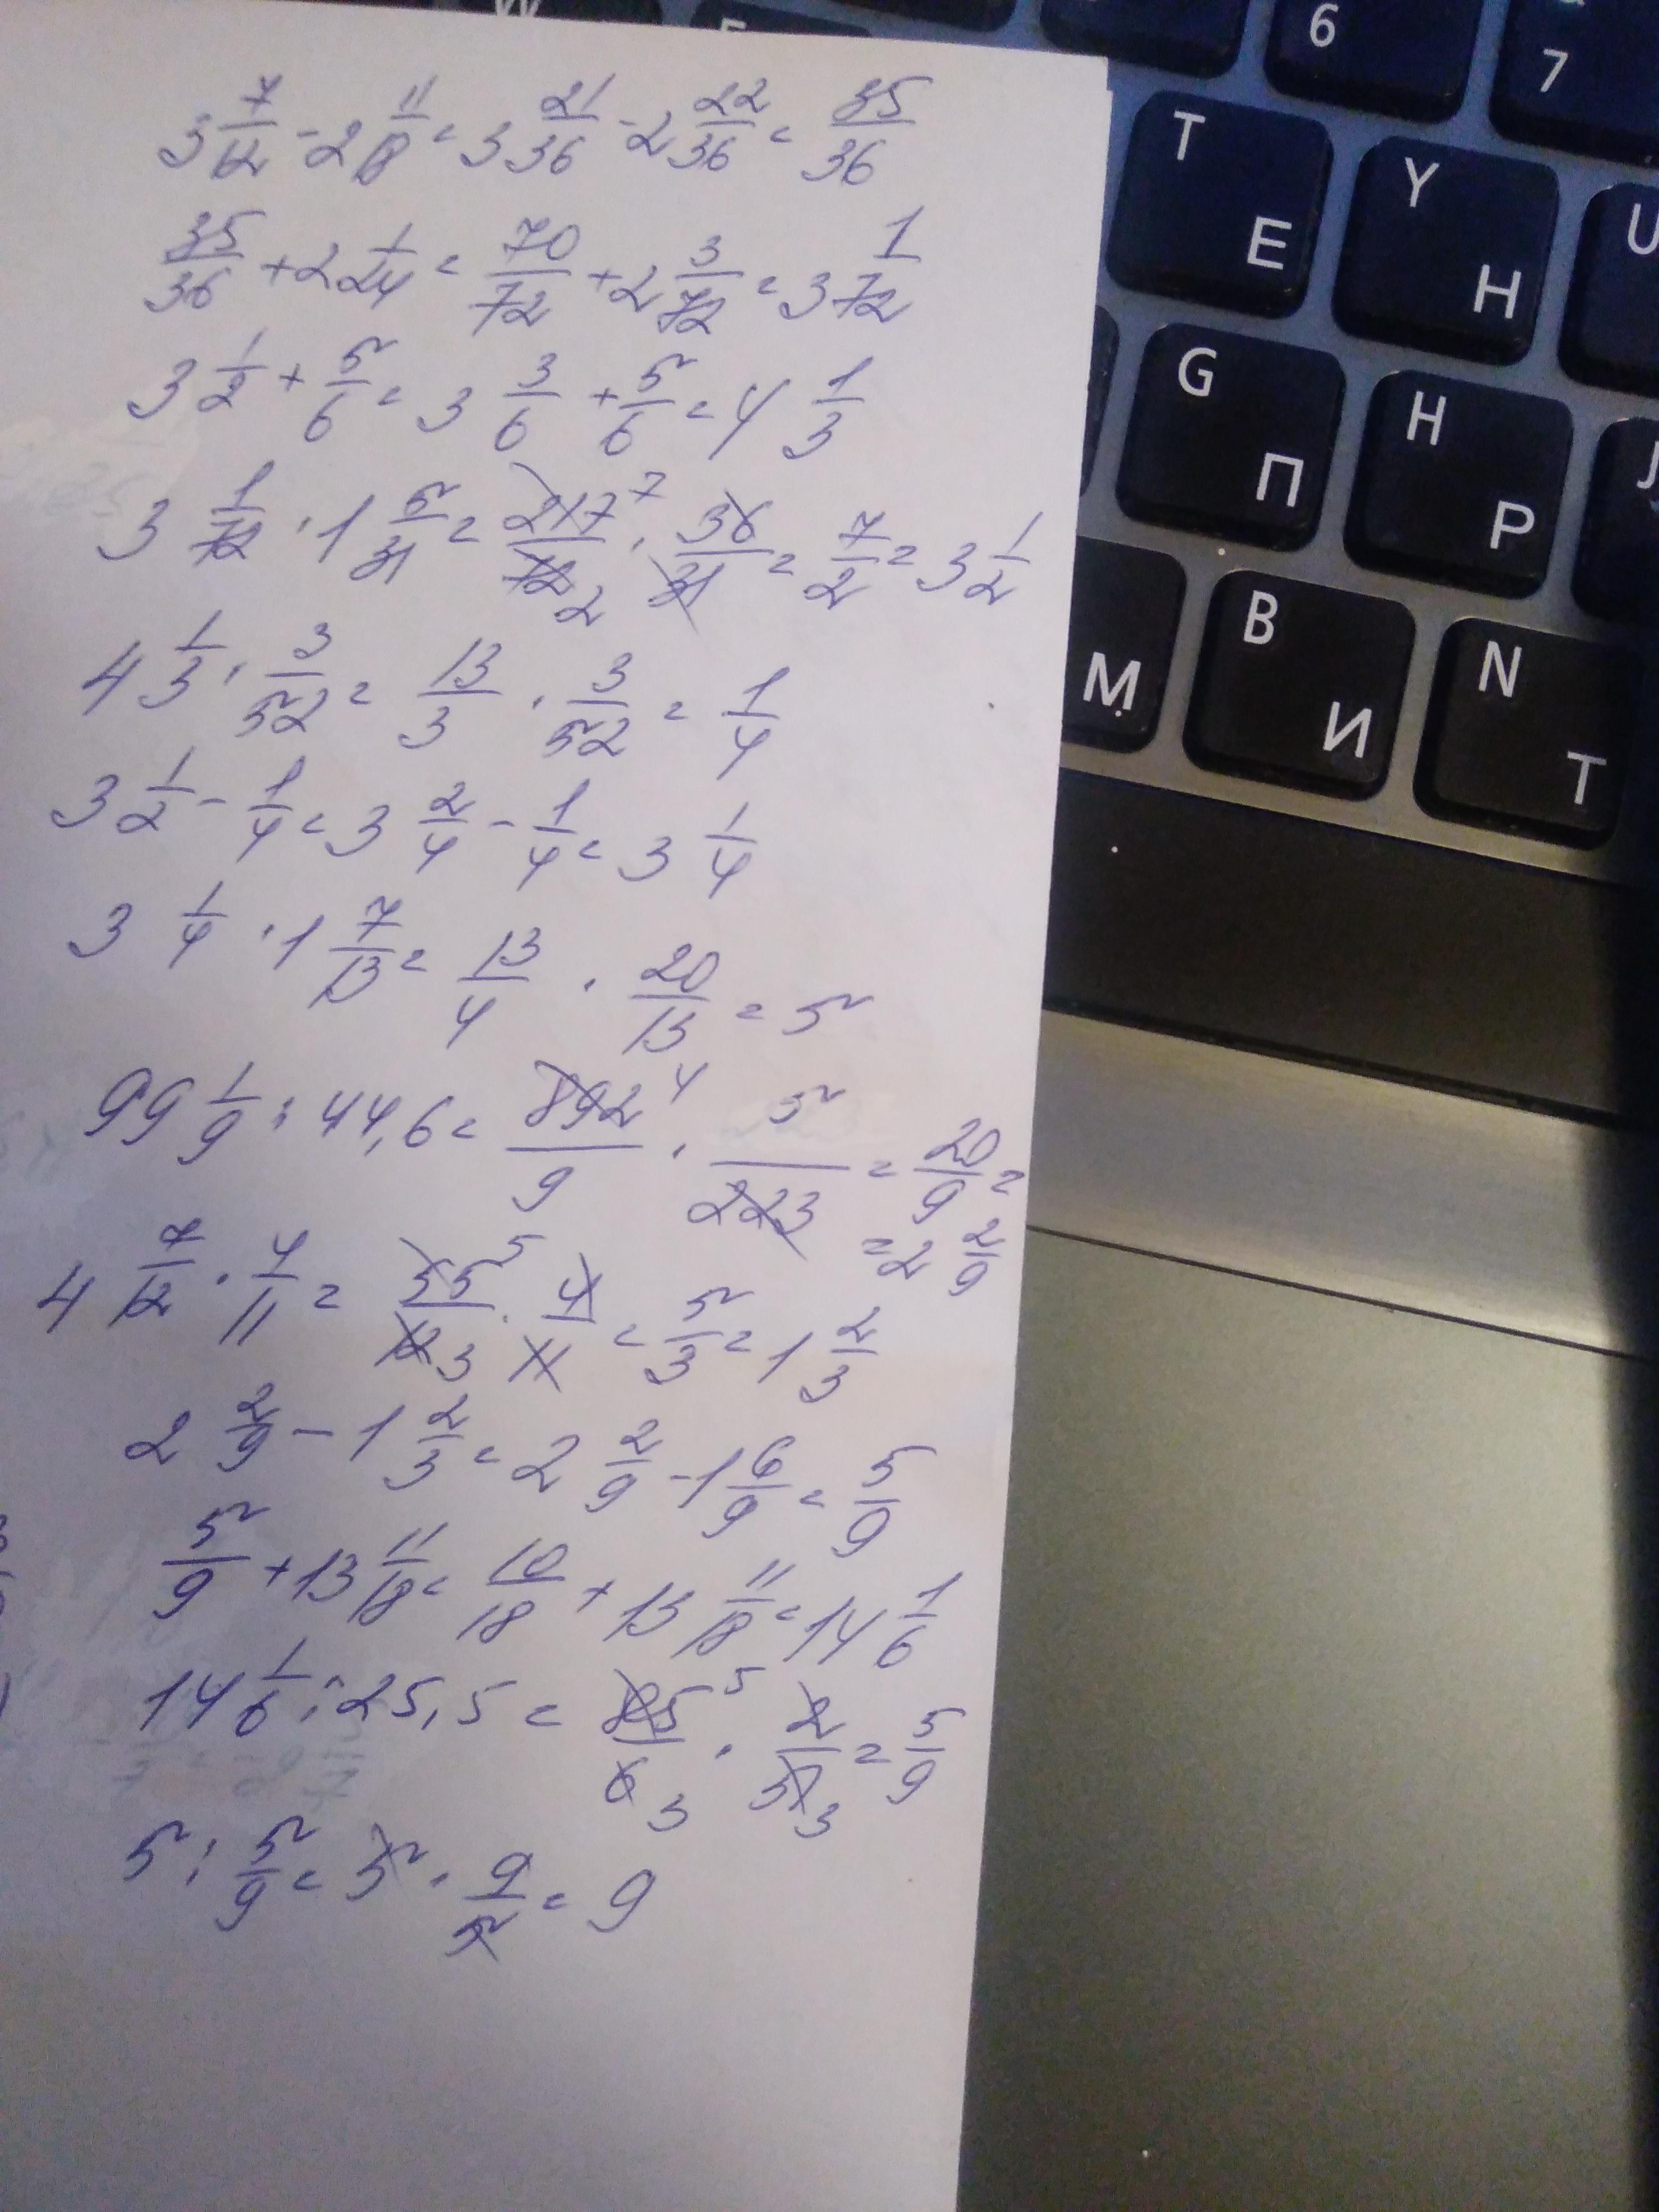 W E 6 7
T E Y H U
G П H P J
M B И N T
3 7/12 - 2 11/18 = 3 21/36 - 2 22/36 = 35/36
35/36 + 2 1/24 = 70/72 + 2 3/72 = 3 1/72
3 1/2 + 5/6 = 3 3/6 + 5/6 = 4 1/3
3 1/72 · 1 5/31 = 217 7/72 2 · 36/31 = 7/2 = 3 1/2
4 1/3 · 3/52 = 13/3 · 3/52 = 1/4
3 1/2 - 1/4 = 3 2/4 - 1/4 = 3 1/4
3 1/4 · 1 7/13 = 13/4 · 20/13 = 5
99 1/9 : 44,6 = 892 4/9 · 5/223 = 20/9 =
= 2 2/9
4 7/12 · 4/11 = 55 5/12 3 · 4/11 = 5/3 = 1 2/3
2 2/9 - 1 2/3 = 2 2/9 - 1 6/9 = 5/9
5/9 + 13 11/18 = 10/18 + 13 11/18 = 14 1/6
14 1/6 : 25,5 = 85 5/6 3 · 2/51 3 = 5/9
5 : 5/9 = 5 · 9/5 = 9